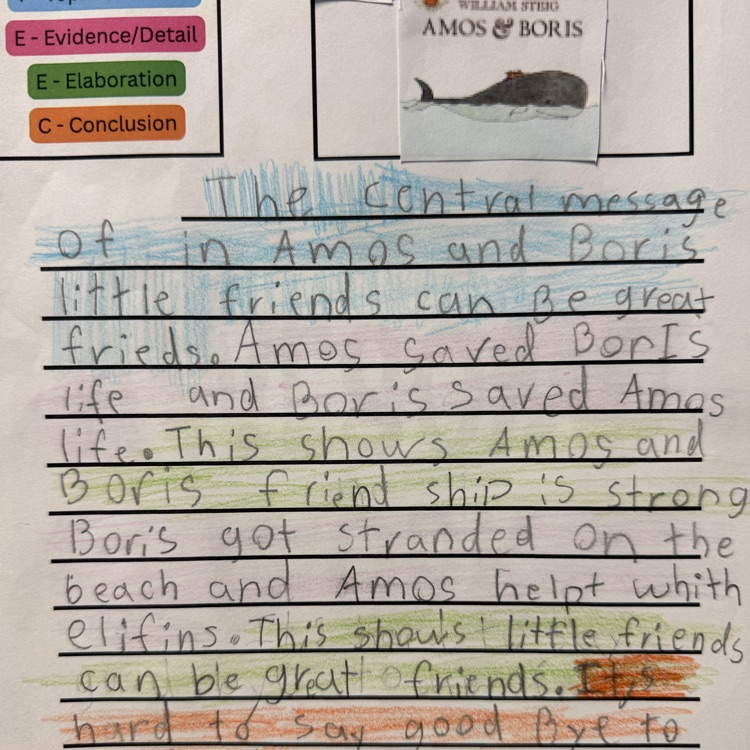 E - Evidence/Detail
E - Elaboration
C - Conclusion
WILLIAM STEIG
AMOS & BORIS
The central message
of in Amos and Boris
little friends can Be great
frieds. Amos saved BorIs
life and Boris saved Amos
life. This shows Amos and
Boris friend ship is strong
Boris got stranded on the
beach and Amos helpt whith
elifins. This shows little friends
can be great friends. It's
hard to say good Bye to